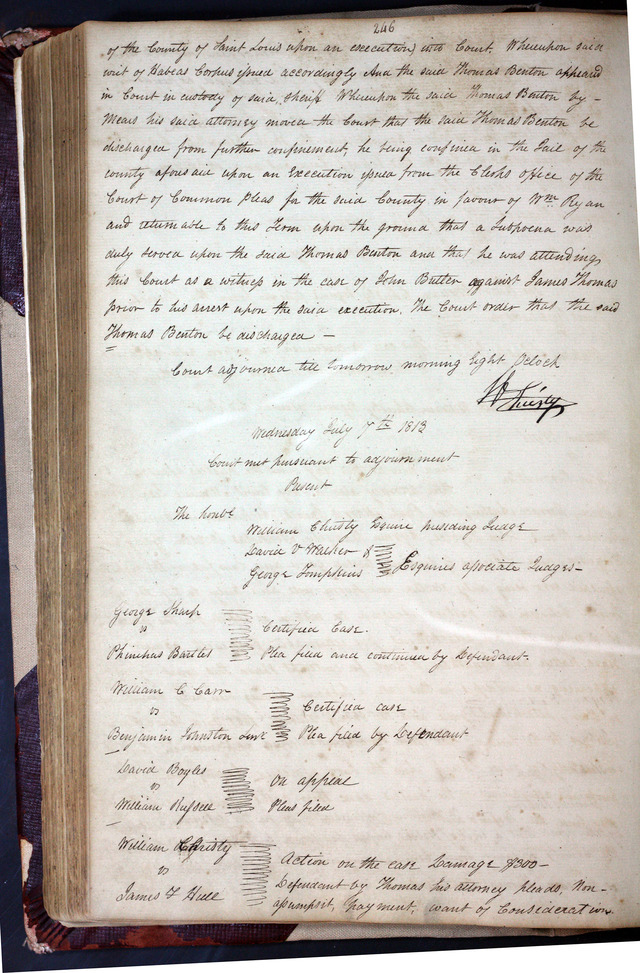 246
of the County of Saint Louis upon an execution into Court. Whereupon said
writ of Habeas Corpus issued accordingly And the said Thomas Benton appeared
in Court in custody of said, sheriff Whereupon the said Thomas Benton by –
Mears his said attorney moved the Court that the said Thomas Benton be
discharged from further confinement, he being confined in the Jail of the
county aforesaid upon an Execution issued from the Clerks office of the
Court of Common Pleas for the said County in favour of Wm Ryan
and returnable to this Term upon the ground that a Subpoena was
duly served upon the said Thomas Benton and that he was attending
this Court as a witness in the case of John Butler against James Thomas
prior to his arrest upon the said execution. The Court order that the said
Thomas Benton be discharged –
Court adjourned till tomorrow morning Eight Oclock
Wm Christy
Wednesday July 7th 1813
Court met pursuant to adjournment
Present
The honble
William Christy Esquire presiding Judge
David V Walker &
George Tompkins Esquires associate Judges –
George Sharp
vs Certified Case.
Phinehas Bartles Plea filed and continued by Defendant.
William C Carr
vs Certified case
Benjamin Johnston Plea filed by Defendant
David Boyles
vs On appeal
William Russell Pleas filed
William Christy
vs Action on the case Damage $300 –
James F Hull Defendant by Thomas his attorney pleads, Non-
assumpsit, Payment, want of Consideration